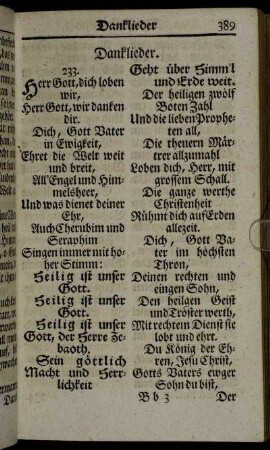 Danklieder 389
Danklieder.
233.
Herr Gott, dich loben
wir,
Herr Gott, wir danken
dir.
Dich, Gott Vater
in Ewigkeit,
Ehret die Welt weit
und breit,
All' Engel und Him-
melsheer,
Und was dienet deiner
Ehr,
Auch Cherubim und
Seraphim
Singen immer mit ho-
her Stimm:
Heilig ist unser
Gott.
Heilig ist unser
Gott.
Heilig ist unser
Gott, der Herre Ze-
baoth.
Sein göttlich
Macht und Herr-
lichkeit
Geht über Himm'l
und Erde weit.
Der heiligen zwölf
Boten Zahl
Und die lieben Prophe-
ten all,
Die theuern Mär-
trer allzumahl
Loben dich, Herr, mit
grossem Schall.
Die ganze werthe
Christenheit
Rühmt dich auf Erden
allezeit.
Dich, Gott Va-
ter im höchsten
Thron,
Deinen rechten und
eingen Sohn,
Den heilgen Geist
und Tröster werth,
Mit rechtem Dienst sie
lobt und ehrt.
Du König der Eh-
ren, Jesu Christ,
Gotts Vaters ewger
Sohn du bist,
B b 3 Der